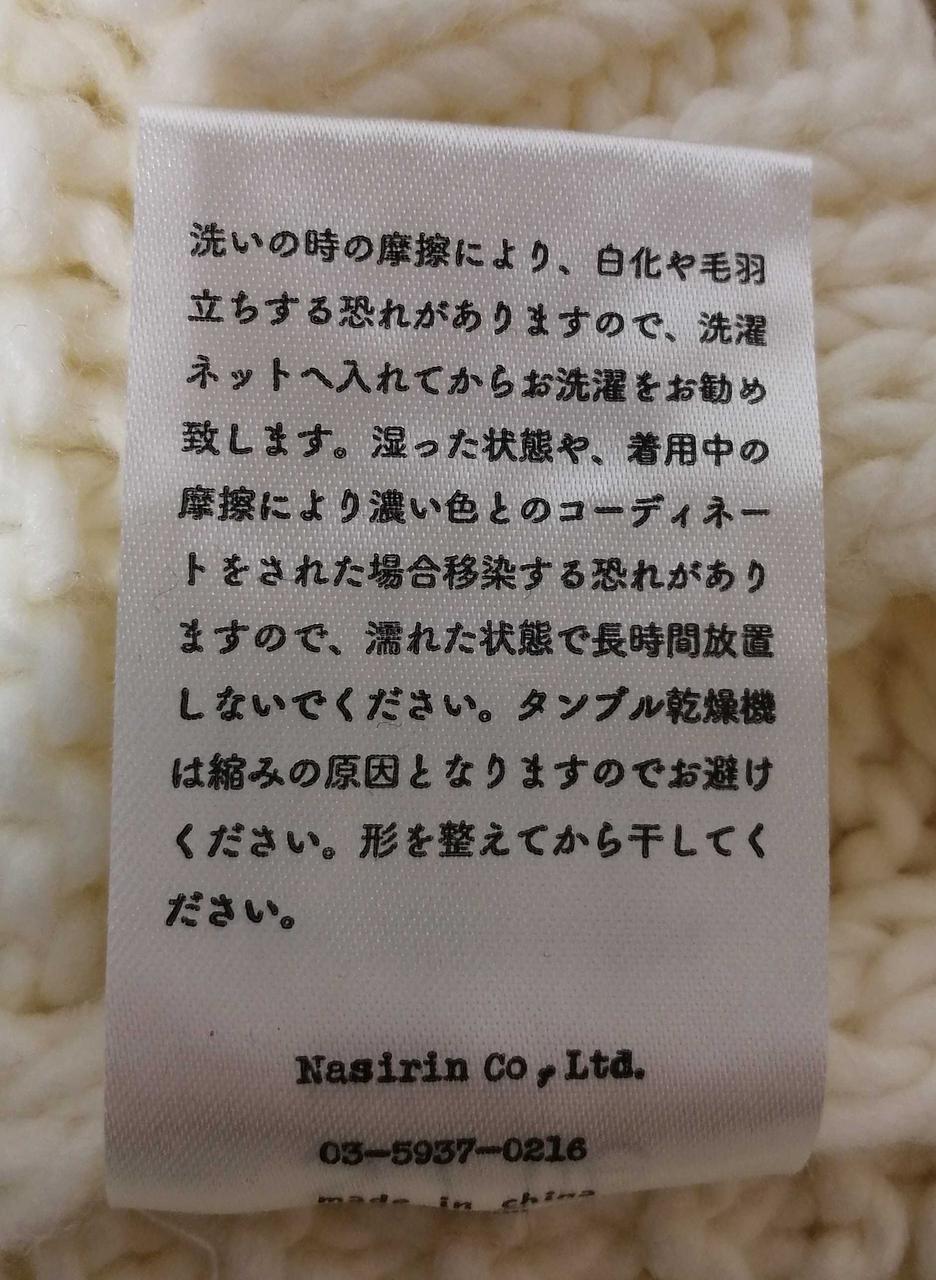 洗いの時の摩擦により、白化や毛羽
立ちする恐れがありますので、洗濯
ネットへ入れてからお洗濯をお勧め
致します。湿った状態や、着用中の
摩擦により濃い色とのコーディネー
トをされた場合移染する恐れがあり
ますので、濡れた状態で長時間放置
しないでください。タンブル乾燥機
は縮みの原因となりますのでお避け
ください。形を整えてから干してく
ださい。
Nasirin Co,Ltd.
03-5937-0216
made in china